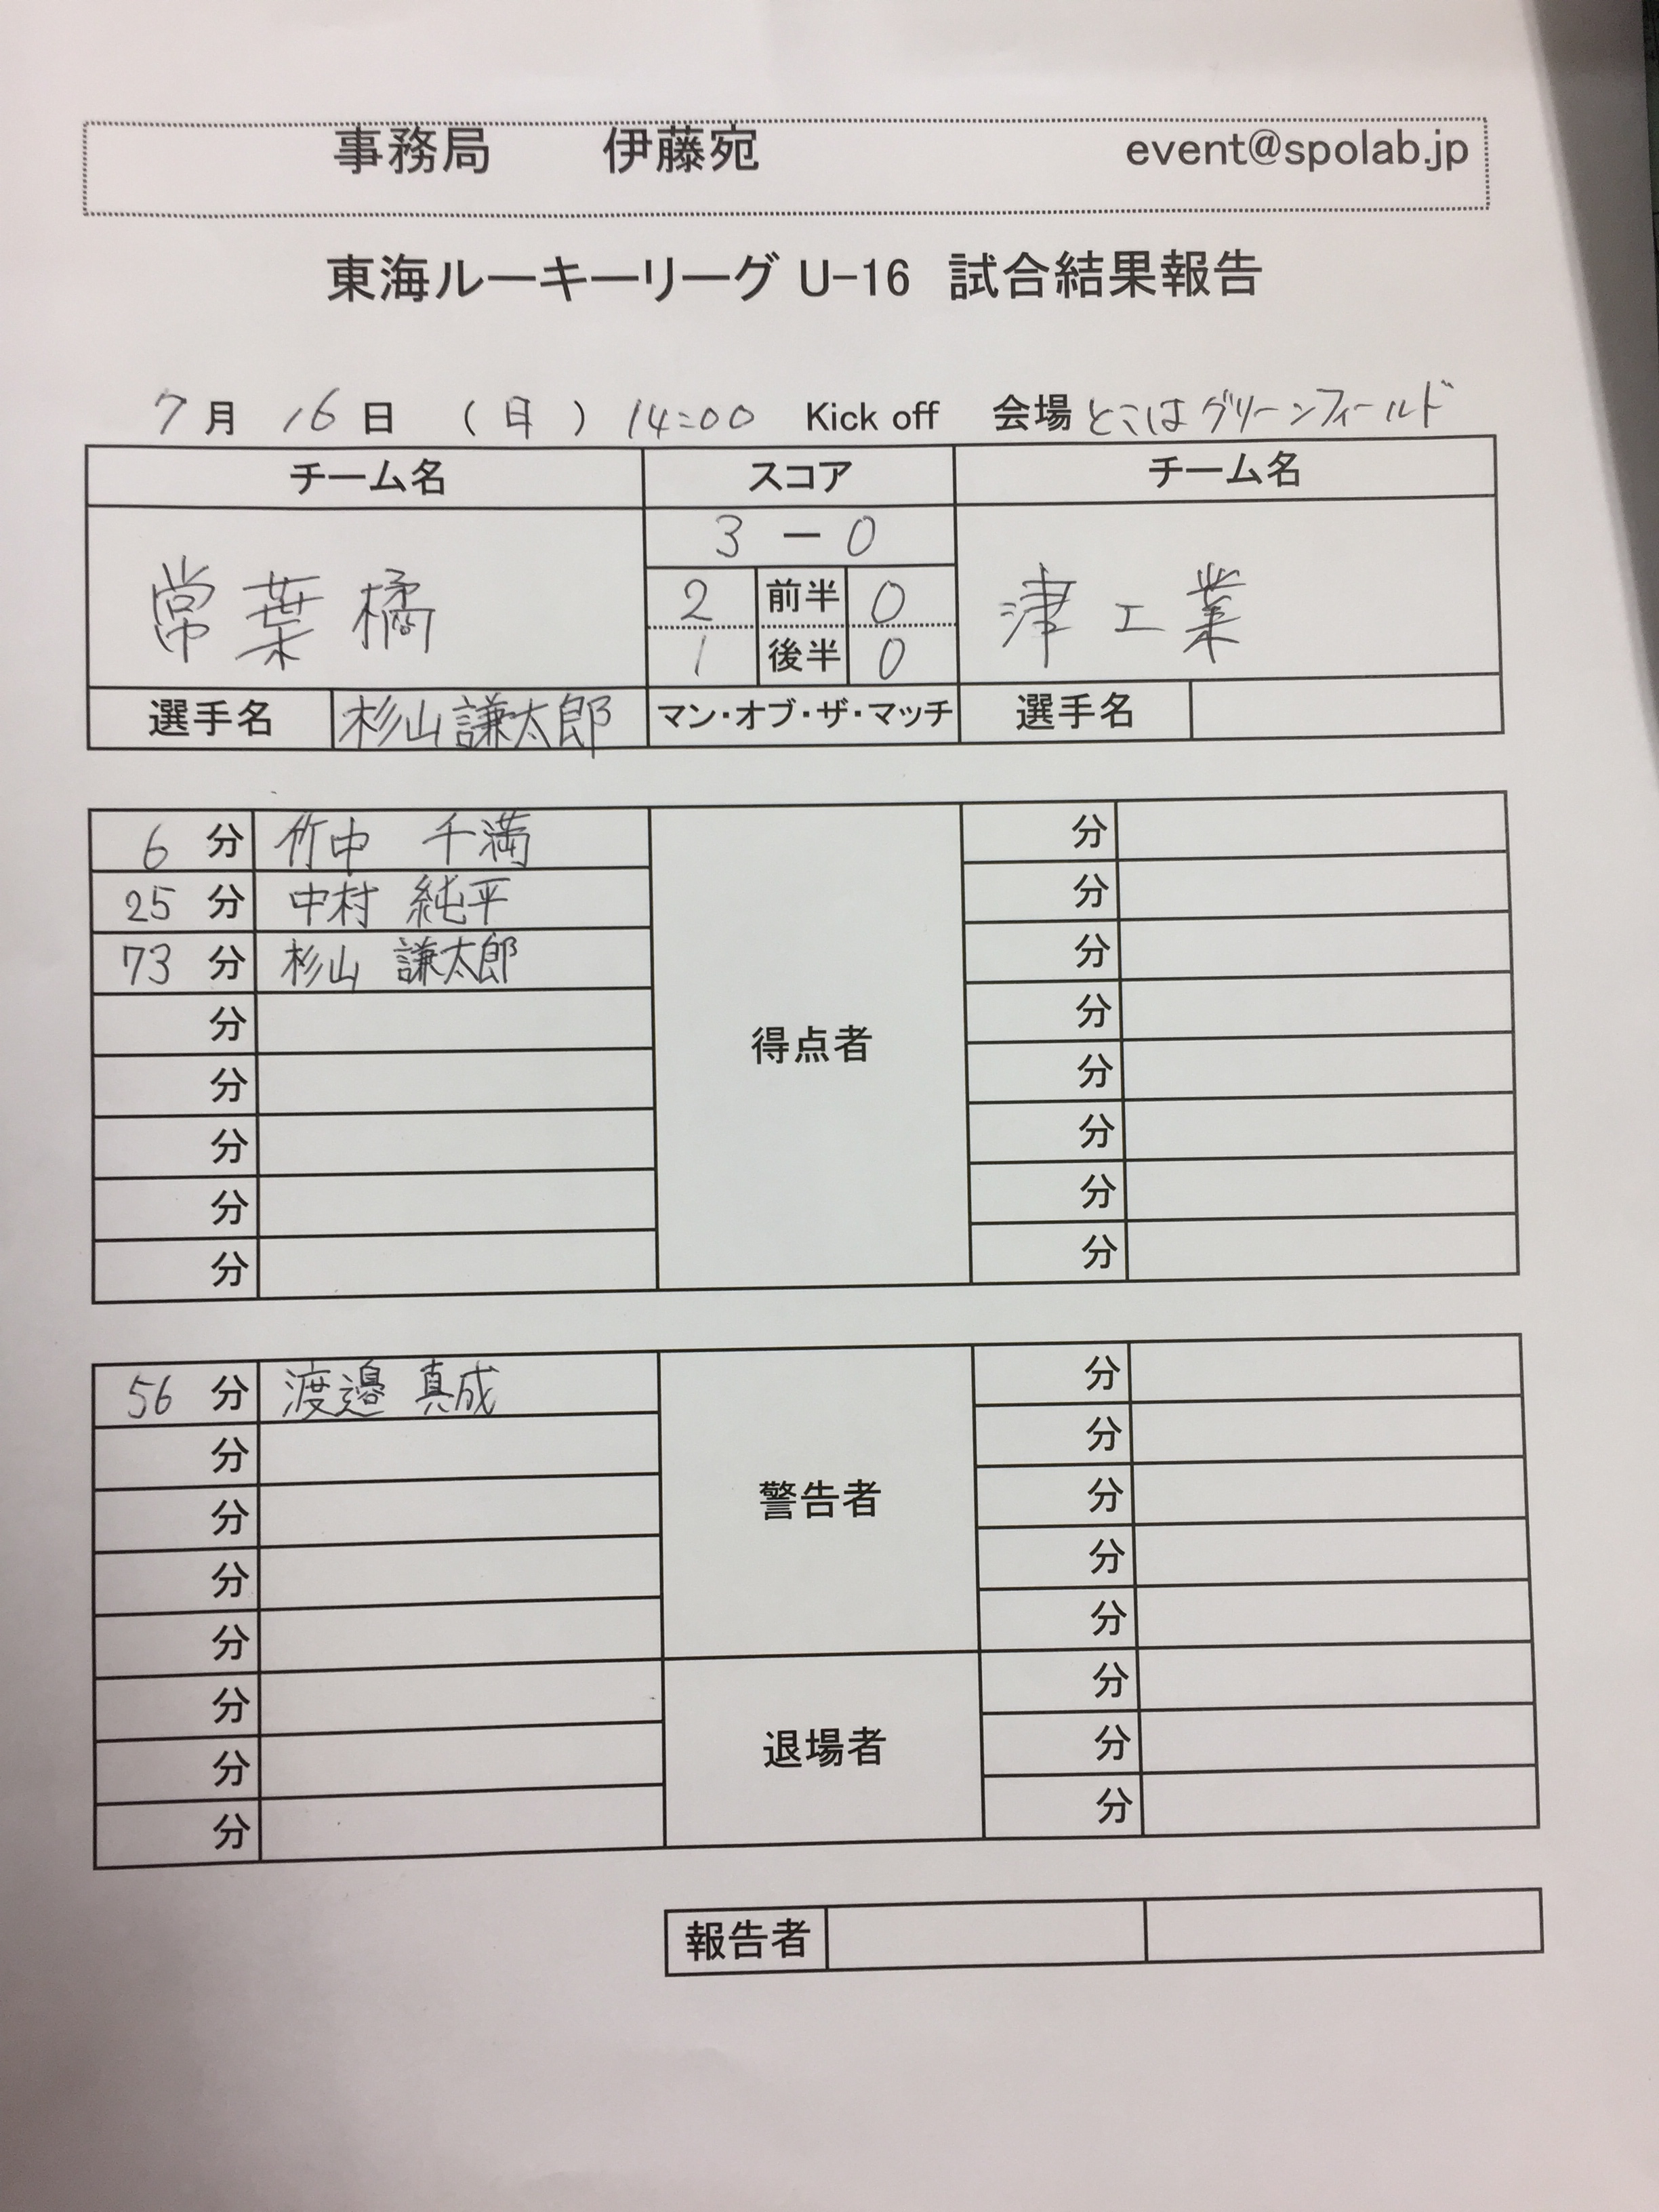 事務局 伊藤宛 event@spolab.jp
東海ルーキーリーグ U-16 試合結果報告
7月 16日 (日) 14:00 Kick off 会場 とこはグリーンフィールド
チーム名 スコア チーム名
3 - 0
常葉橘 2 前半 0 津工業
1 後半 0
選手名 杉山謙太郎 マン・オブ・ザ・マッチ 選手名
6 分 竹中 千満 分
25 分 中村 純平 分
73 分 杉山 謙太郎 分
分 分
得点者
分 分
分 分
分 分
分 分
56 分 渡邉 真成 分
分 分
警告者
分 分
分 分
分 分
分 分
退場者
分 分
分 分
報告者